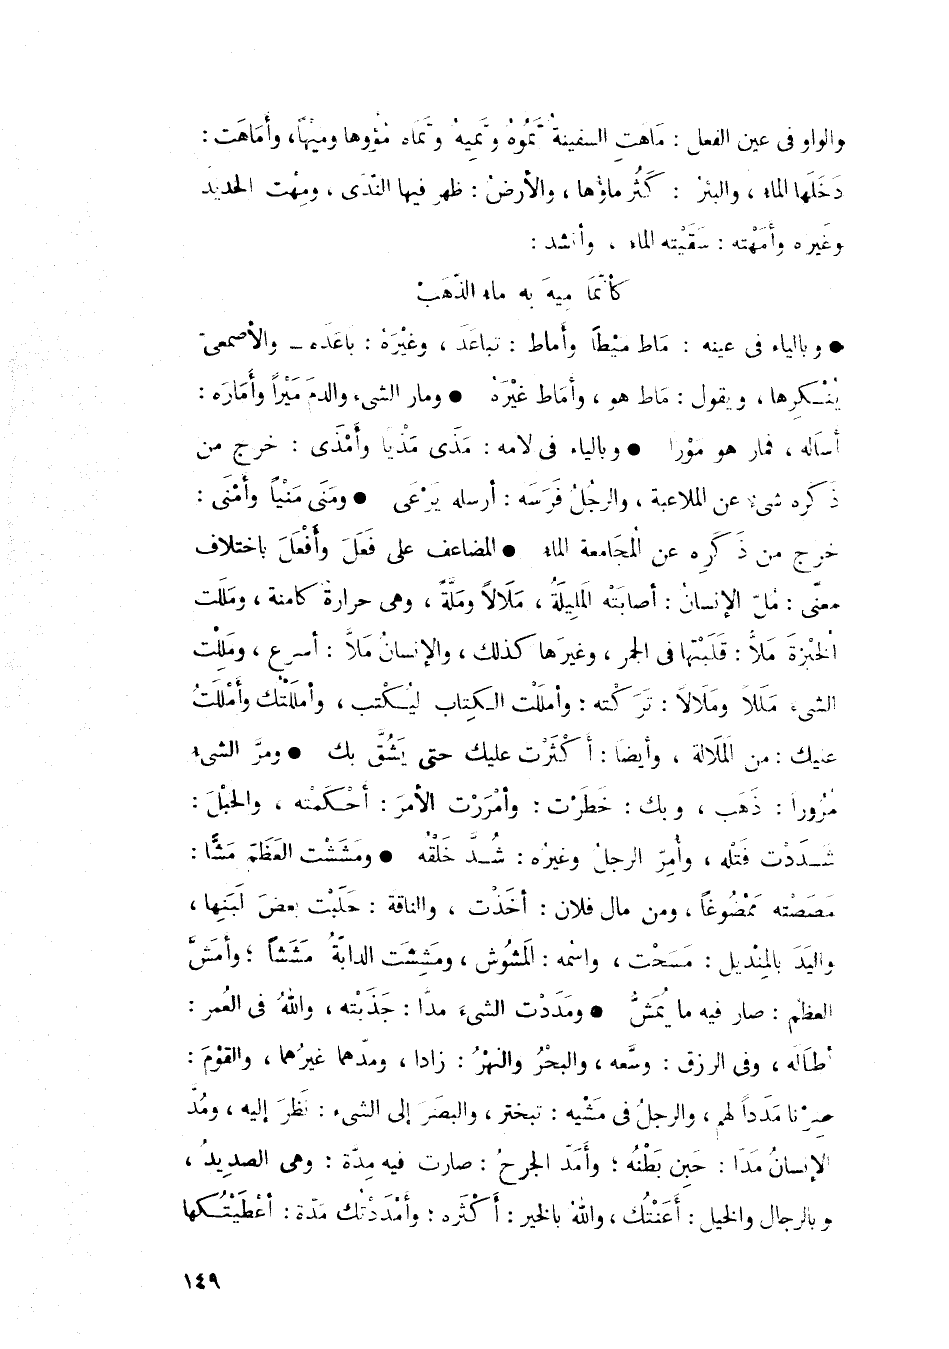 والواو فى عين الفعل : مَاهَتِ السفينةُ تَمُوهُ وتَمِيهُ وتَمَاه مُؤُوها ومَيْهًا، وأَمَاهَت :
دَخَلَها الماء ، والبئرُ : كَثُر ماؤها ، والأرضُ : ظهر فيها النّدَى ، ومِهْت الحديد
وغيره وأَمَهْته : سَقَيْته الماء ، وأنشد :
كأنّمَا مِيهَ به ماء الذّهَبْ
● وبالياء فى عينه : مَاط مَيْطًا وأماط : تباعَدَ ، وغَيْرَهُ : باعَدَه – والأصمعىّ
يُنْكِرها ، ويقول : مَاط هو ، وأمَاط غَيْرَهُ ● ومار الشىء والدمَ مَيْراً وأَمَارَه :
أسالَه ، فمار هو مَوْرا ● وبالياء فى لامه : مَذَى مَذْيا وأَمْذَى : خرج من
ذَكره شىء عن الملاعبة ، والرجُلُ فَرَسَه : أرسله يَرْعَى ● ومَنَى مَنْياً وأَمْنَى :
خرج من ذَكَرِه عن المُجَامعة الماء ● المضاعف على فَعَلَ وأَفْعَلَ باختلاف
معنًى : مُلّ الإنسانُ : أصابَتْه المَلِيلَةُ ، مَلَالاً ومَلَّةً ، وهى حرارة كامنة ، ومَلَلت
الخُبْزةَ مَلاًّ : قَلَبْتها فى الجمر ، وغيرَها كذلك ، والإنسانُ مَلاًّ : أسرع ، ومَلِلْت
الشىء مَلَلاً ومَلَالاً : تَرَكْته : وأملَلْت الكِتاب ليُكْتب ، وأملَلْتك وأَمْلَلتُ
عليك : من المَلَالة ، وأيضا : أَكْثَرْت عليك حتى يَشُقّ بك ● ومرَّ الشىء
مُرُوراً : ذَهَب ، وبك : خَطَرْت : وأَمْرَرْت الأمرَ : أَحْكَمْته ، والحَبْلَ :
شَدَدْت فَتْله ، وأُمِرّ الرجلُ وغيرُه : شُدَّ خَلْقُه ● ومَشَشْت العَظمَ مَشًّا :
مَصَصْته مَمْضُوغاً ، ومن مال فلان : أخَذْت ، والناقة : حَلَبْت بعضَ لَبَنِها ،
واليَدَ بالمِنْديل : مَسَحْت ، واسْمه : المَشُوش ، ومَشِشَت الدابّةُ مَشَشاً ؛ وأمَشَّ
العظمُ : صار فيه ما يُمَشُّ ● ومَدَدْت الشىءَ مدًّا : جَذَبْته ، واللهُ فى العُمر :
أطَالَه ، وفى الرزق : وسَّعه ، والبحْرُ والنهْرُ : زادا ، ومدّهما غيرُهما ، والقَوْمَ :
صِرْنا مَدَداً لهم ، والرجلُ فى مَشْيه : تبختر ، والبصَرَ إلى الشىء : نَظَرَ إليه ، ومُدَّ
الإنسانُ مَدًا : حَبِن بَطْنُه ؛ وأَمَدّ الجرحُ : صارت فيه مِدّة : وهى الصديدُ ،
وبالرجال والخيل : أَعَنْتُك ، واللهُ بالخير : أَكْثَره : وأَمْدَدْتك مَدّة : أَعْطَيْتُكها
١٤٩